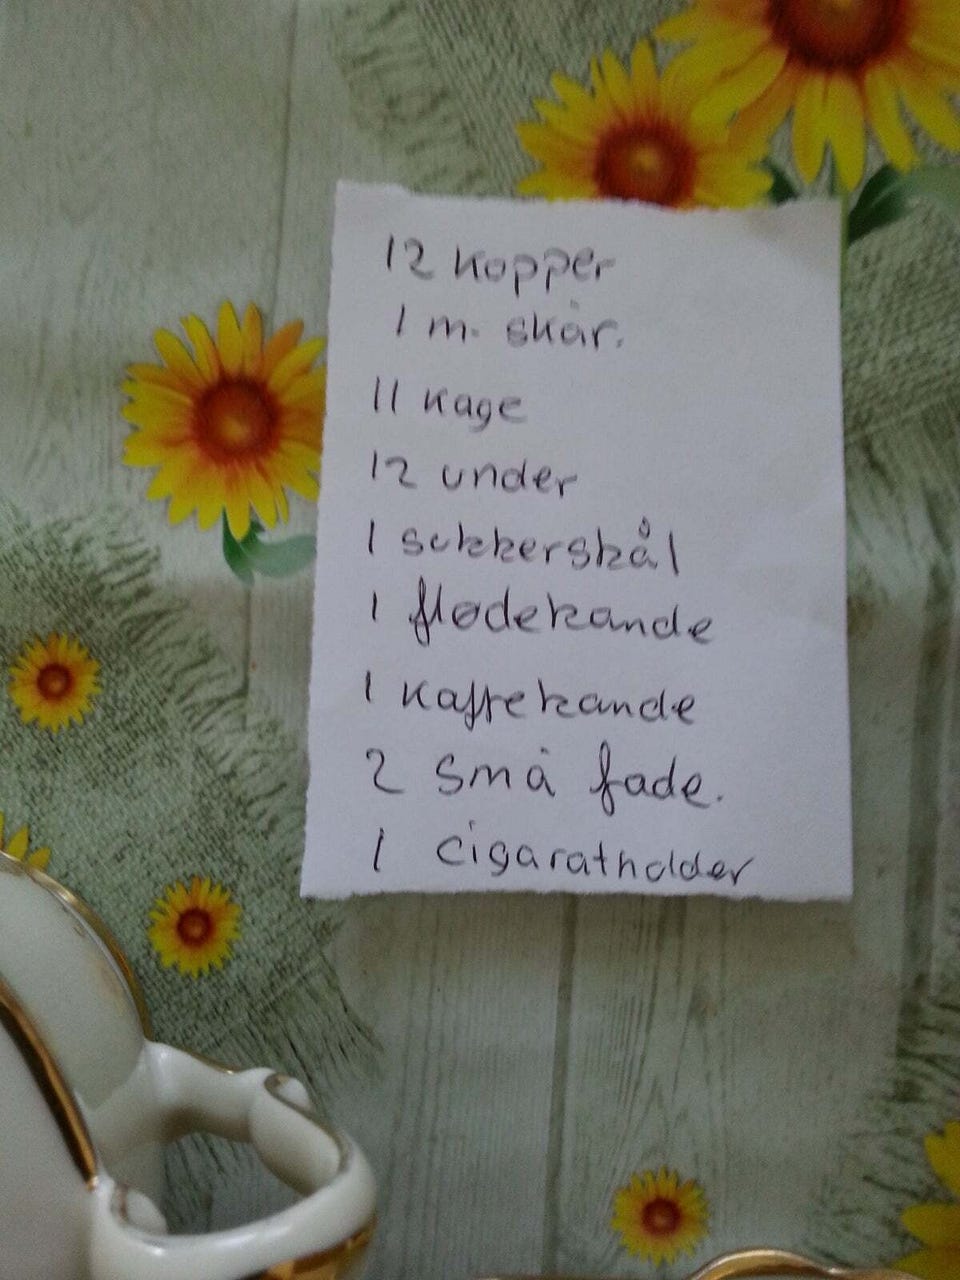 12 kopper
1 m. skår.
11 kage
12 under
1 sukkerskål
1 flødekande
1 kaffekande
2 små fade.
1 cigaratholder